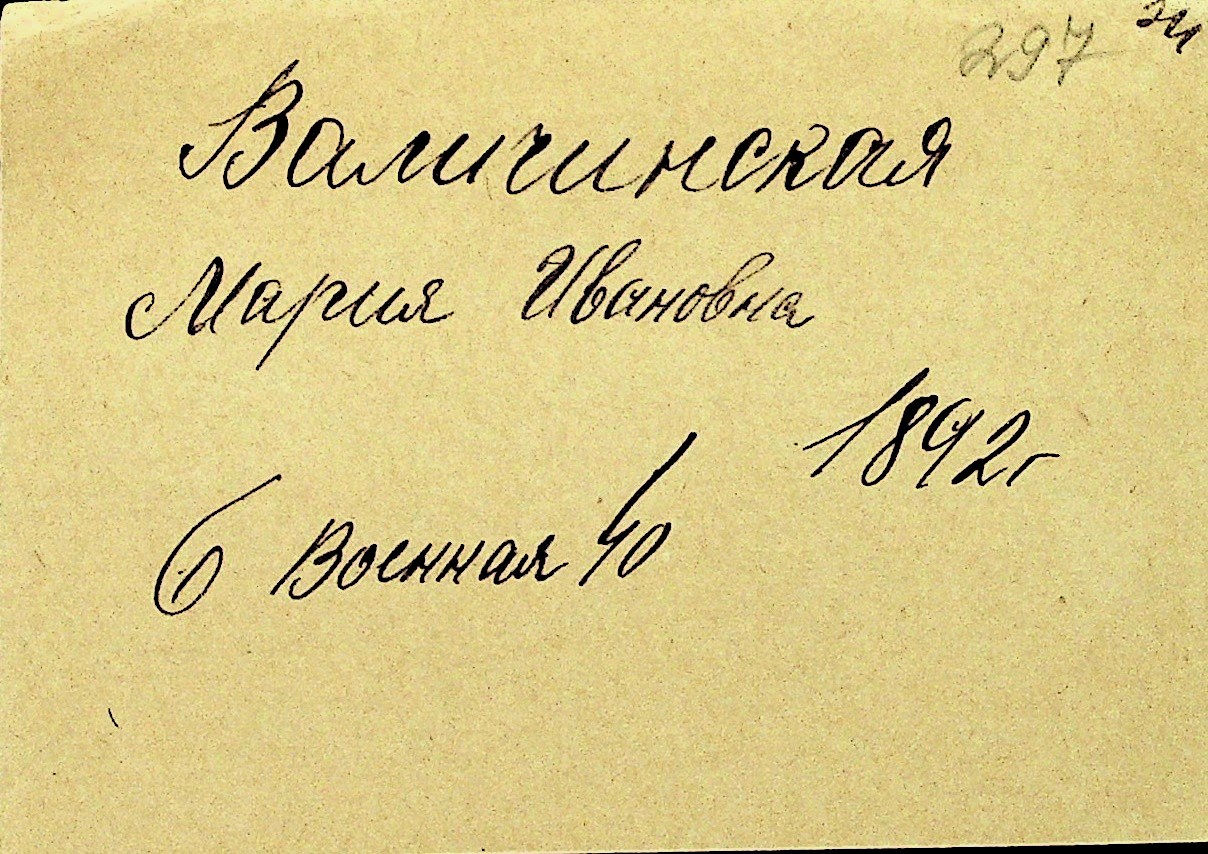 297
Валичинская
Мария Ивановна
1892г
6 Военная 40